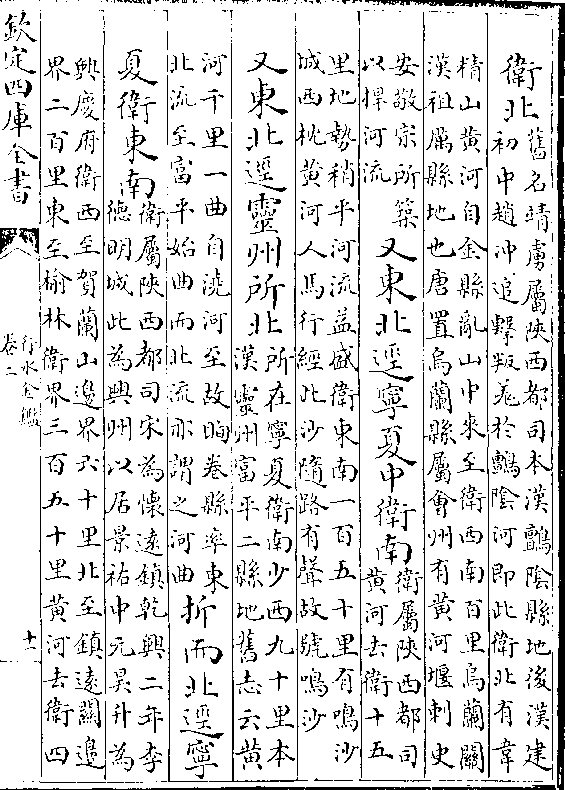 衛北
舊名靖虜屬陝西都司本漢鸇陰縣地後漢建
初中趙沖追擊叛羌於鸇陰河即此衛北有韋
精山黄河自金縣亂山中來至衛西南百里烏蘭關
漢祖厲縣地也唐置烏蘭縣屬會州有黄河堰刺史
安敬宗所築
以捍河流
又東北逕寧夏中衛南
衛屬陝西都司
黄河去衛十五
里地勢稍平河流益盛衛東南一百五十里有鳴沙
城西枕黄河人馬行經此沙隨路有聲故號鳴沙
又東北逕靈州所北
所在寧夏衛南少西九十里本
漢靈州富平二縣地舊志云黄
河千里一曲自澆河至故眴卷縣率東
北流至富平始曲而北流亦謂之河曲
折而北逕寧
夏衛東南
衛屬陝西都司宋為懷遠鎮乾興二年李
德明城此為興州以居景祐中元昊升為
興慶府衛西至賀蘭山邊界六十里北至鎮遠關邊
界二百里東至榆林衛界三百五十里黄河去衛四
欽定四庫全書
行水金鑑
卷二
十一